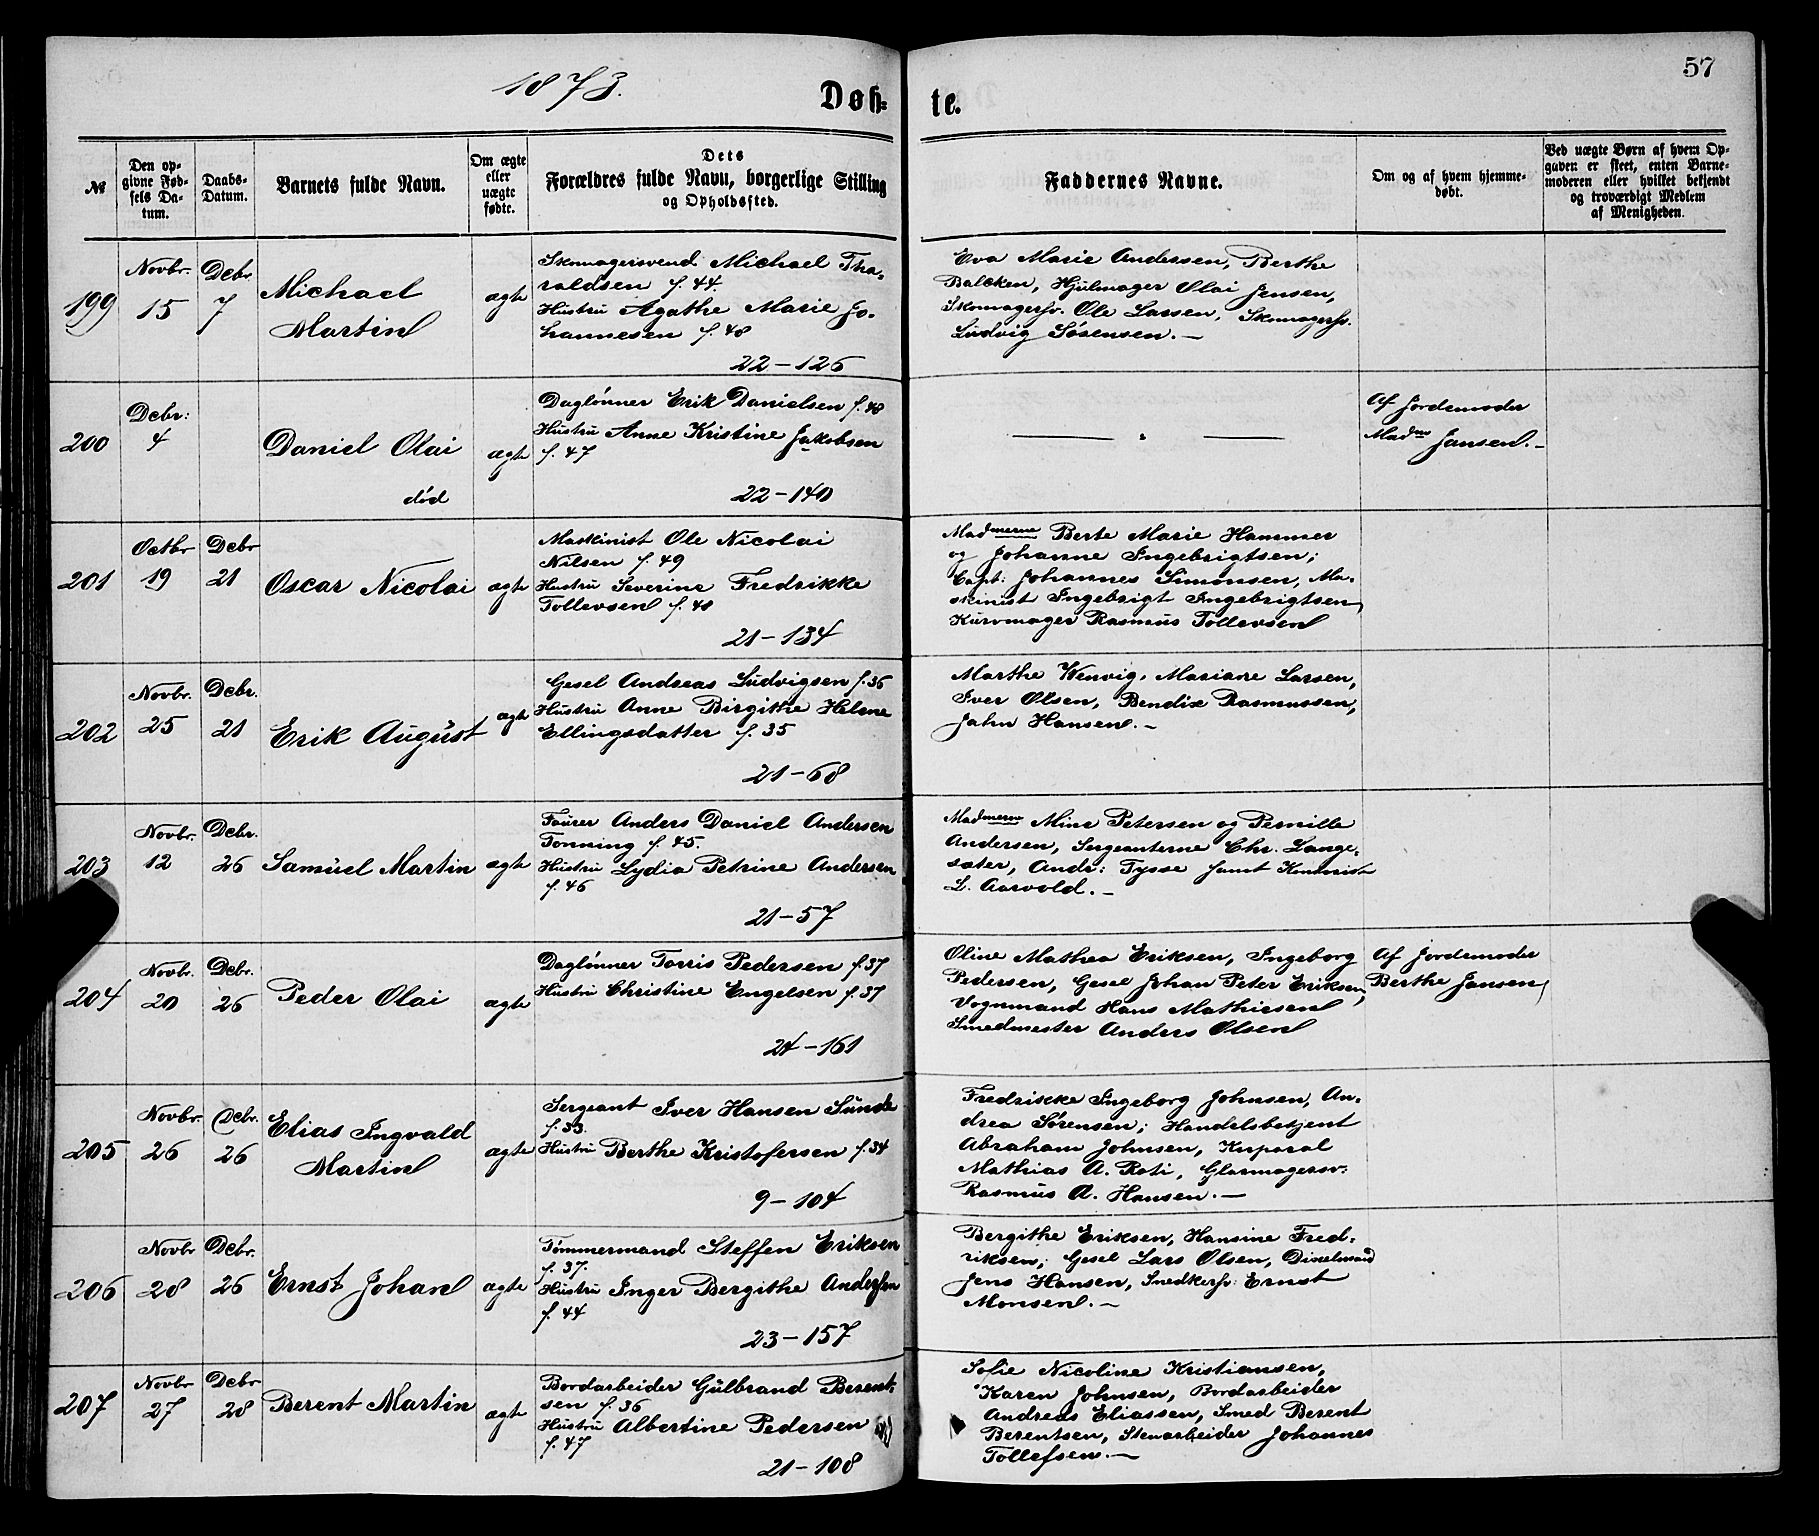 57
1873.
Døb-
te.
№
Den op-
givne Fød-
sels Da-
tum.
Daabs-
Datum.
Barnets fulde Navn.
Om ægte
eller
uægte
fødte.
Dets
Forældres fulde Navn, borgerlige Stilling
og Opholdssted.
Faddernes Navne.
Om og af hvem hjemme-
døbt.
Ved uægte Børn af hvem Op-
gaven er skeet, enten Barne-
moderen eller hvilket bekjendt
og troværdigt Medlem
af Menigheden.
199
Novbr.
15
Debr.
7
Michael
Martin
ægte
Skomagersvend Michael Tha-
raldsen f. 44.
Hustru Agathe Marie Jo-
hannesen f. 48
22-126
Eva Marie Andersen, Berthe
Balcken, Hjulmager Olai Jensen,
Skomagersv. Ole Lassen, Skomagersv.
Ludvig Sørensen.-
200
Debr:
4
Daniel Olai
død
ægte
Daglønner Erik Danielsen f. 48
Hustru Anne Kristine Jakobsen
f. 47
22-140
— " —
Af Jordemoder
Madme Jansen.-
201
Octbr
19
Debr
21
Oscar Nicolai
ægte
Maskinist Ole Nicolai
Nilsen f. 49
Hustru Severine Fredrikke
Tollevsen f. 48
21-134
Madmerne Berte Marie Hammer
og Johanne Ingebrigtsen;
Capt: Johannes Simonsen, Ma-
skinist Ingebrigt Ingebrigtsen,
Kurvmager Rasmus Tollevsen
202
Novbr.
25
Debr.
21
Erik August
ægte
Gesel Andreas Ludvigsen f. 36
Hustru Anne Birgithe Helene
Ellingsdatter f. 35
21-68
Marthe Wenvig, Mariane Larsen,
Iver Olsen, Bendix Rasmussen,
Jahn Hansen.-
203
Novbr.
12
Debr.
26
Samuel Martin
ægte
Fourer Anders Daniel Andersen
Tonning f. 45.
Hustru Lydia Petrine Andersen
f. 46
21-57
Madmerne Mine Petersen og Pernille
Andersen, Sergeanterne Chr. Lange-
sæter, Andr: Tysse samt Kommis
L. Aarvold.-
204
Novbr.
20
Debr.
26
Peder Olai
ægte
Daglønner Torris Pedersen f. 37
Hustru Christine Engelsen f. 37
24-161
Oline Mathea Eriksen, Ingeborg
Pedersen, Gesel Johan Peter Eriksen,
Vognmand Hans Mathiesen
Smedmester Anders Olsen
Af Jordemoder
Berthe Jansen,
205
Novbr.
26
Debr.
26
Elias Ingvald
Martin
ægte
Sergeant Iver Hansen Sunde
f. 33.
Hustru Berthe Kristofersen f. 34
9-104
Fredrikke Ingeborg Johnsen, An-
drea Sørensen; Handelsbetjent
Abraham Johnsen, Korporal
Mathias A. Roti, Glarmagersv:
Rasmus A. Hansen.-
206
Novbr
28
Debr.
26
Ernst Johan
ægte
Tømmermand Steffen Eriksen
f. 37.
Hustru Inger Bergithe Andersen
f. 44
23-157
Bergithe Eriksen, Hansine Fred-
riksen; Gesel Lars Olsen, Dixelmand
Jens Hansen, Snedkersv: Ernst
Monsen.-
207
Novbr
27
Debr
28
Berent Martin
ægte
Bordarbeider Gulbrand Berent-
sen f. 36
Hustru Albertine Pedersen
f. 47
21-108
Sofie Nicoline Kristiansen,
Karen Johnsen, Bordarbeider
Andreas Eliassen, Smed Berent
Berentsen, Stenarbeider Johannes
Tollefsen.-